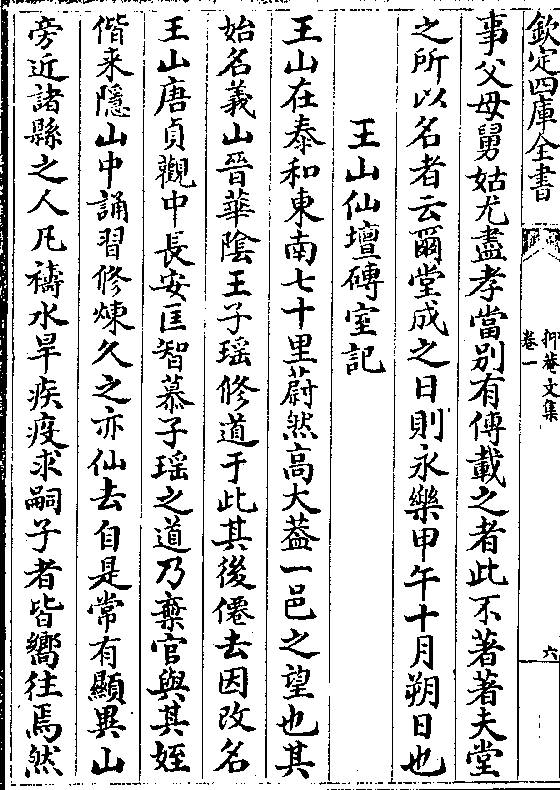 欽定四庫全書
抑菴文集
卷一
六
事父母舅姑尤盡孝當別有傳載之者此不著著夫堂
之所以名者云爾堂成之日則永樂甲午十月朔日也
王山仙壇磚室記
王山在泰和東南七十里蔚然高大葢一邑之望也其
始名義山晉華陰王子瑶修道于此其後僊去因改名
王山唐貞觀中長安匡智慕子瑶之道乃棄官與其姪
偕来隱山中誦習修煉久之亦仙去自是常有顯異山
旁近諸縣之人凡禱水旱疾疫求嗣子者皆嚮往焉然